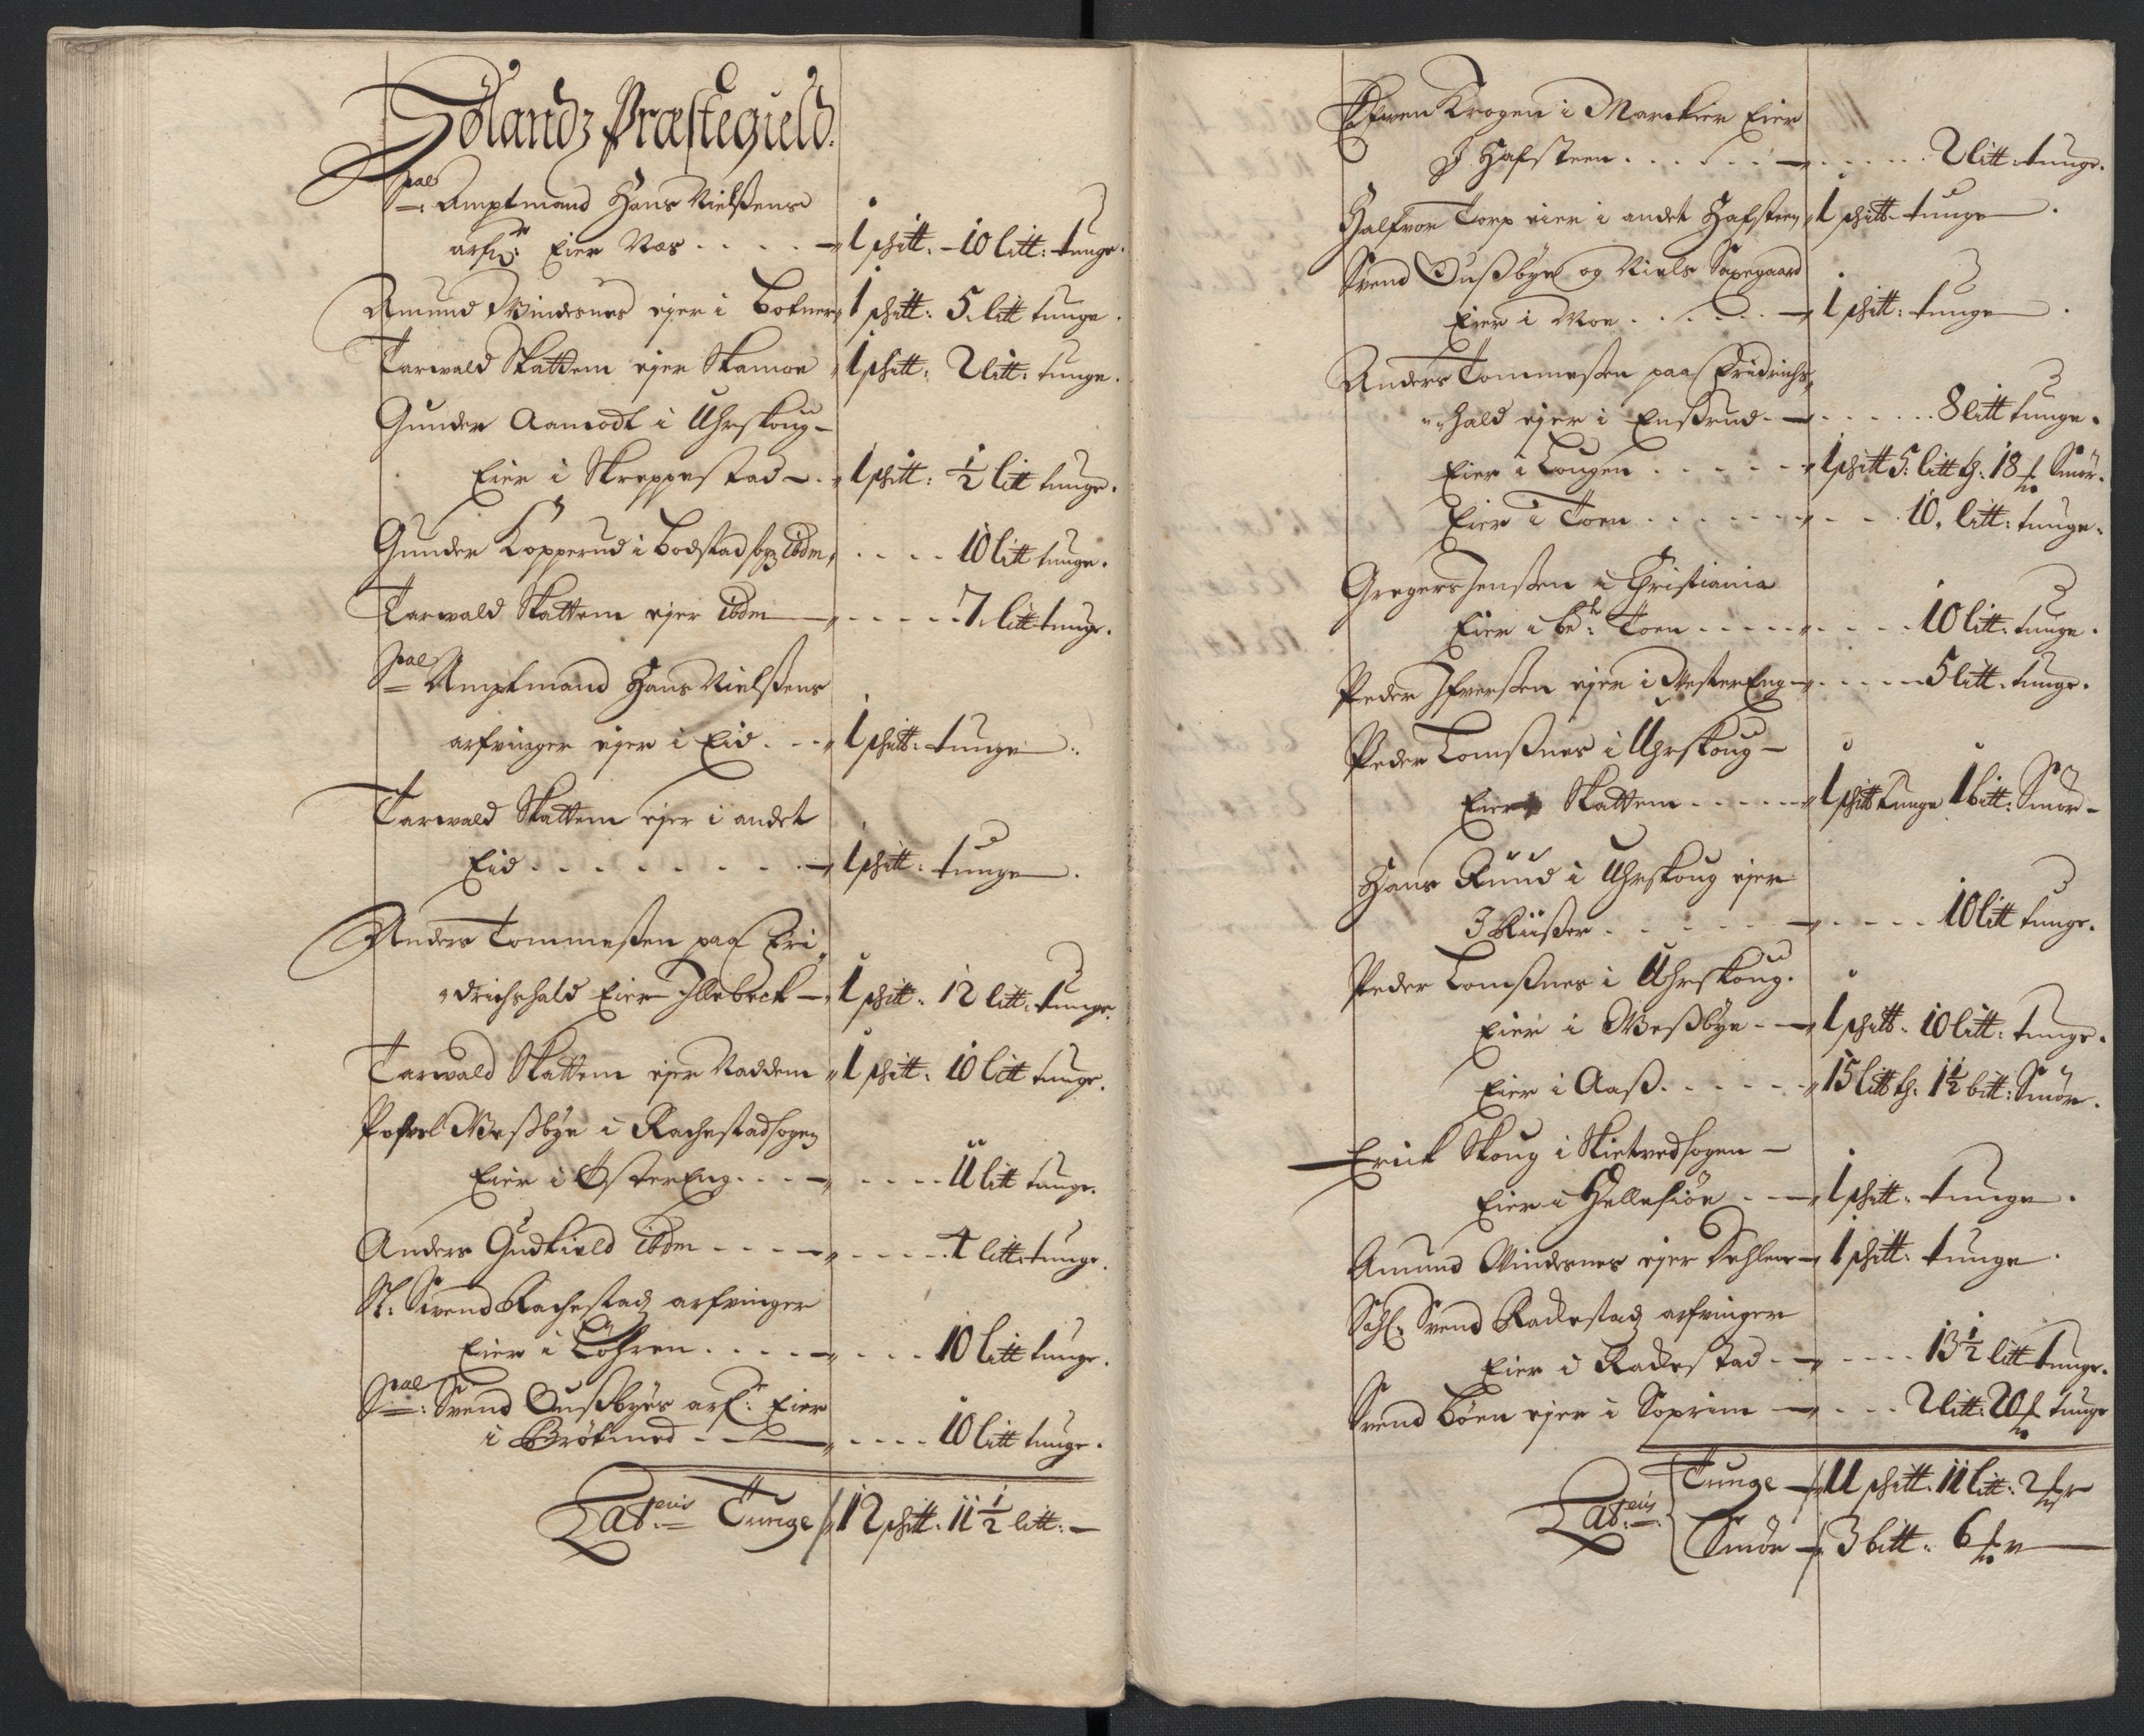 Hølandz Præstegield.
Sal: Amptmand Hans Nielßens
arfv: Eier Næs . . . . 1 schitt. - 10 litt: tunge.
Amund Windsnes ejer i Botner 1 schitt: 5. litt tunge.
Tarwald Skattem ejer Skamoe 1 schitt: 2 litt: tunge.
Gunder Aamodt i Uhrskoug -
Eier i Skreppestad - . 1 schitt: ½ litt tunge.
Gunder Kopperud i Bodstad sog: ibdm . . . . 10 litt tunge.
Tarwald Skattem ejer ibdm . . . . . 7. litt tunge.
Sal Amptmand Hans Nielßens
arfvinger ejer i Eid . . 1 schitt: tunge.
Tarwald Skattem ejer i andet
Eid . . . . . . . . 1 schitt: tunge.
Anders Tommesßen paa Fri,,
,,drichshald Eier Illebeck - 1 schitt. 12 litt: tunge.
Tarwald Skattem ejer Naddem 1 schitt. 10 litt tunge.
Pofvel Weßbye i Rachestad sogen
Eier i Øster Eng . . . . . . . 11 litt tunge.
Anders Gudkield ibdm . . . . . . . . 4 litt: tunge.
Sl. Svend Rachestad arfvinger
Eier i Løhren . . . . . . . 10 litt tunge.
Sal: Svend Oußbyes arf: Eier
i Brøtmed . . . . . . 10 litt tunge.
Lateris Tunge 12 schitt. 11 ½ litt: -
Efven Krogen i Marckier Eier
J Hafsteen . . . . . . . . . . 2 litt: tunge.
Halfvor Torp eier i andet Hafsteen 1 schitt tunge.
Svend Oußbye og Niels Sopegaard
Eier i Moe . . . . . . 1 schitt: tunge.
Anders Tommesßen paa Fridrichs,,
,,hald ejer i Enßrud . . . . . . 8 litt tunge.
Eier i Lougen . . . . . 1 schitt 5: litt t. 18 Smør.
Eier i Toen . . . . . . . . 10. litt: tunge.
Gregers Jensßen i Christiania
Eier i bd: Toen . . . . . . . . 10 litt: tunge.
Peder Ifversßen ejer i Vester Eng . . . . . 5 litt. tunge.
Peder Lomßnes i Uhrskoug -
Eier Skattem . . . . . . 1 schitt tunge 1 bitt: Smør -
Hans Ruud i Uhrskoug ejer
J Riißer . . . . . . . . . . 10 litt tunge.
Peder Lomßnes i Uhrskoug.
Eier i Weßbye . - 1 schitt. 10 litt: tunge.
Eier i Aaß . . . . . . 15 litt t. 1½ bitt: Smør.
Erick Skoug i Skietved sogen -
Eier i Hellesiøe . . 1 schitt. tunge.
Amund Windsnes ejer Sehler 1 schitt. tunge.
Sahl: Svend Rackestad arfvinger
Eier i Rackestad . . . . . . 13½ litt tunge.
Svend Bøen ejer i Soprim . . . . 2 litt: 20 tunge
Lateris: Tunge 11 schitt. 11 litt: 2
Smør 3 bitt. 6